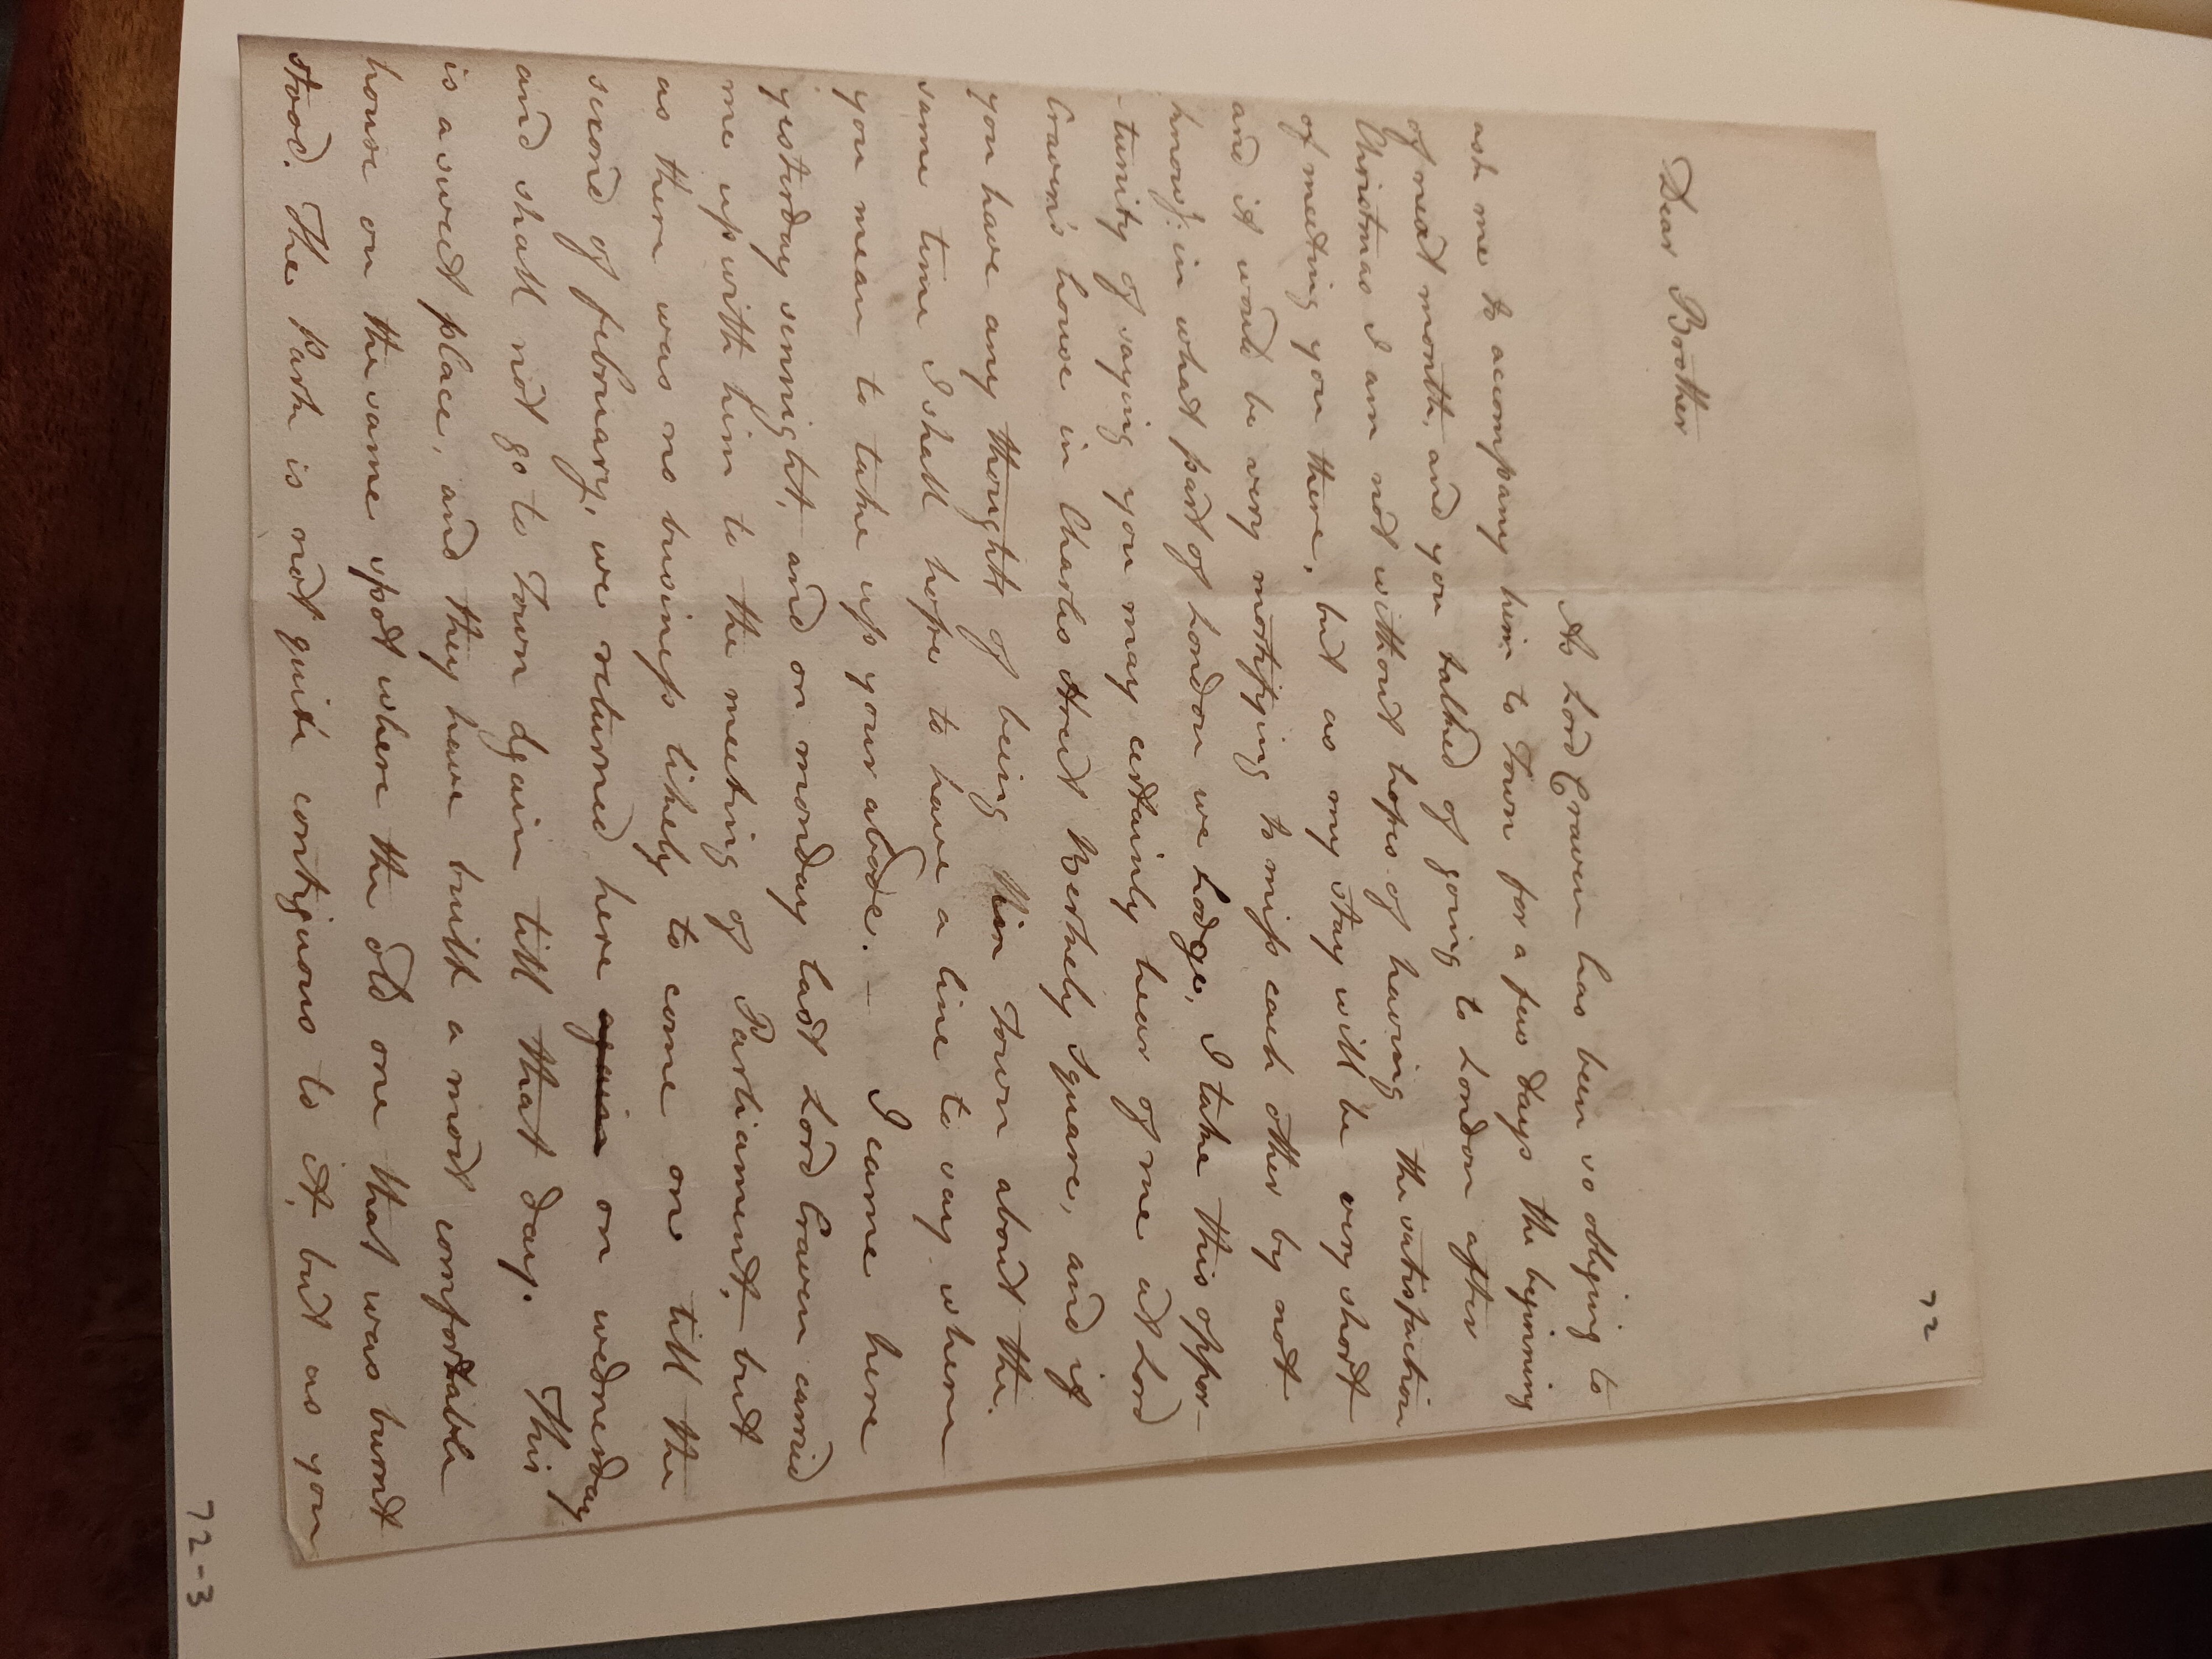 72
Dear Brother
As Lord Craven has been so obliging to
ask me to accompany him to Town for a few days the beginning
of next month, and you talked of going to London after
Christmas I am not without hopes of having the satisfaction
of meeting you there, but as my stay will be very short
and it would be very mortifying to miss each other by not
knowg: in what part of London we Lodge, I take this oppor-
-tunity of saying you may certainly hear of me at Lord
Craven's house in Charles Street Berkely Square, and if
you have any thoughts of being in Town about the
same time I shall hope to have a line to say where
you mean to take up your abode. - I came here
yesterday sennight, and on monday last Lord Craven carried
me up with him to the meeting of Parliament, but
as there was no business likely to come on till the
second of february, we returned here again on wednesday
and shall not go to Town again till that day. This
is a sweet place, and they have built a most comfortable
house on the same spot where the old one that was burnt
stood. The Park is not quite contiguous to it, but as you
72-3